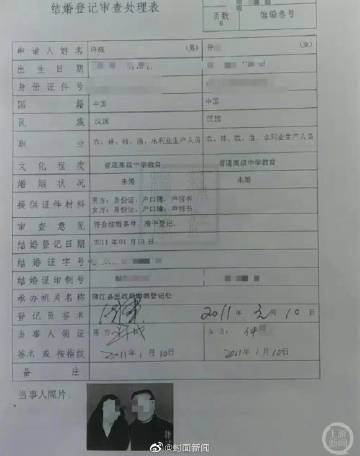 结婚登记审查处理表
页数
6
申请人姓名 许 (男)
出生日期
身份证件号
国籍 中国 中国
民族 汉族 汉族
职业 农、林、牧、渔、水利业生产人员 农、林、牧、渔、水利业生产人员
文化程度 普通高级中学教育 普通高级中学教育
婚姻状况 未婚 未婚
提供证件材料 男方:身份证、户口簿、声明书
女方:身份证、户口簿、声明书
审查意见 符合结婚条件,准予登记。
结婚登记日期 2011年01月10日
结婚证字号
结婚证印制号
承办机关名称 蒲江县民政局婚姻登记处
登记员签名 2011年元月10日
当事人领证
签名或按指纹
男方: 女方:
2011年1月10日 2011年1月10日
备注
当事人照片:
上游新闻
@封面新闻